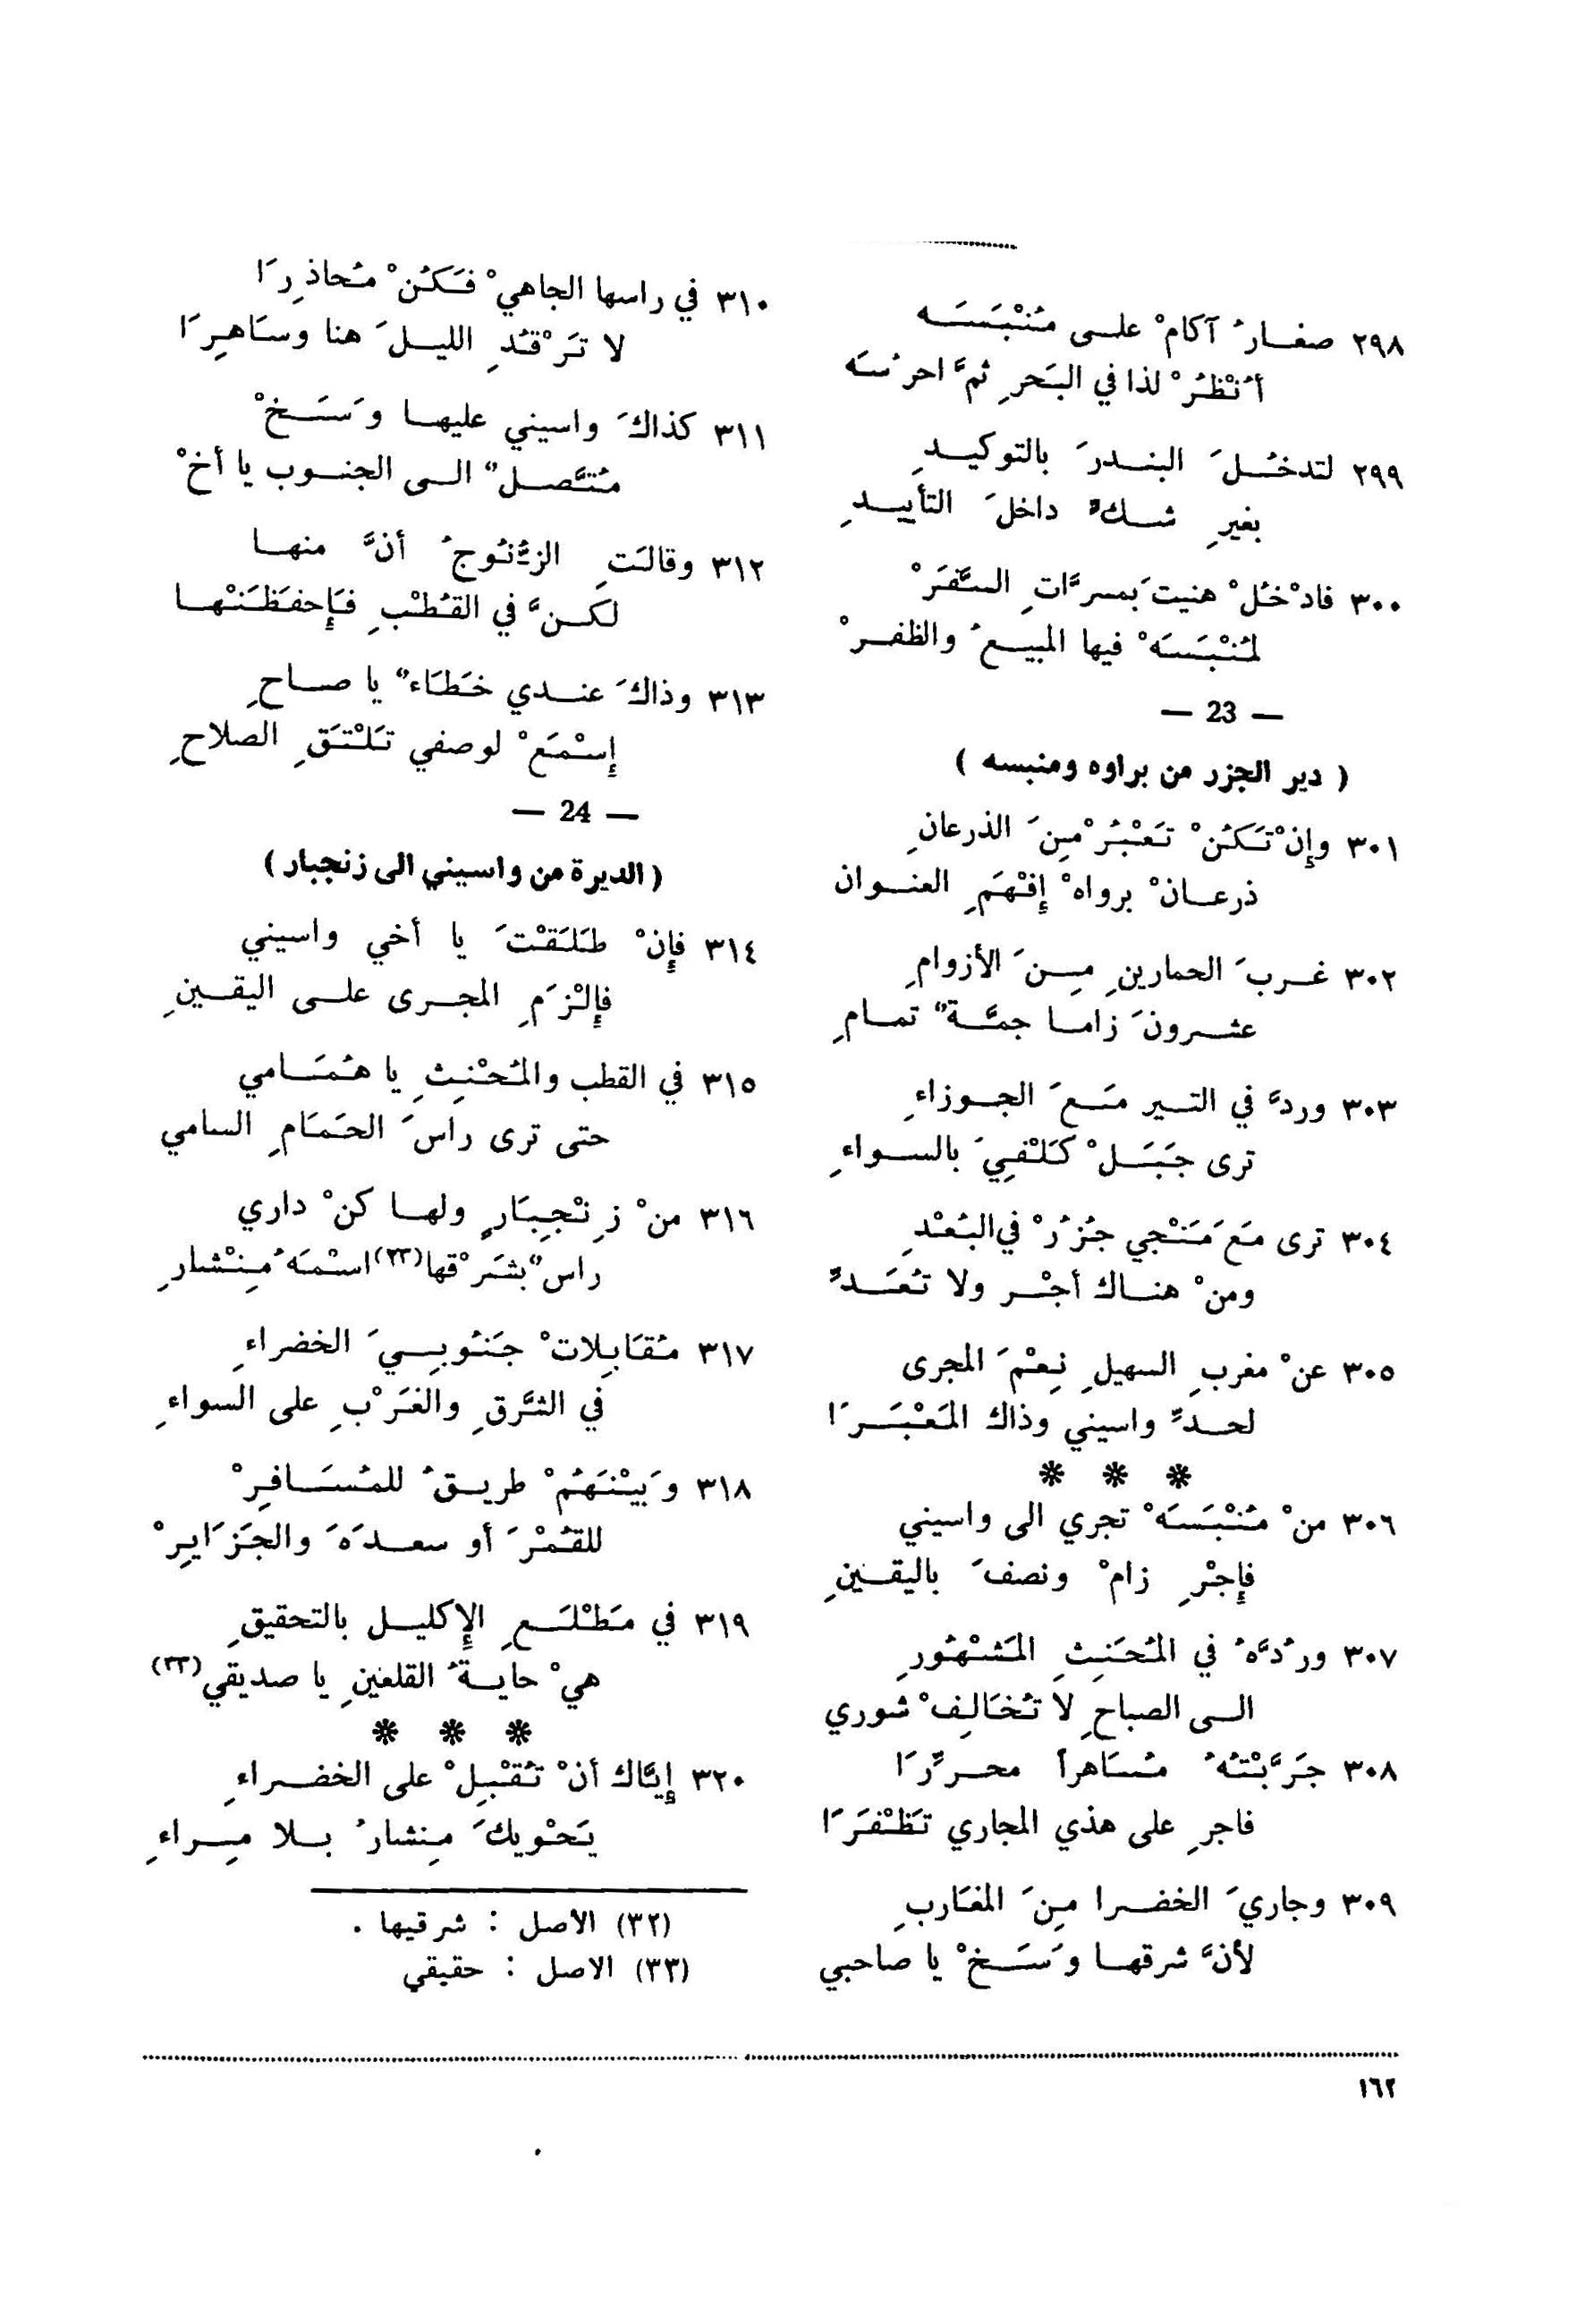 ٢٩٨ صغارُ آكامْ على مُنْبَسَه
أُنْظُرْ لذا في البَحرِ ثمَّ احرُسَه
٢٩٩ لتدخُلَ البندرَ بالتوكيدِ
بغيرِ شكٍّ داخلَ التأييدِ
٣٠٠ فادْخُلْ هنيتَ بمسرَّاتِ السَّفَرْ
لمُنْبَسَهْ فيها المبيعُ والظفرْ
— 23 —
( دير الجزر من براوه ومنبسه )
٣٠١ وإِنْ تَكُنْ تَعْبُرْ مِنَ الذرعانِ
ذرعانْ برواهْ إِفْهَمِ العنوان
٣٠٢ غربَ الحمارينِ مِنَ الأزوامِ
عشرونَ زاما جمَّةٌ تمامِ
٣٠٣ وردَّ في التير مَعَ الجوزاءِ
ترى جَبَلْ كَلْفِيَ بالسواءِ
٣٠٤ ترى مَعَ مَنْجي جُزُرْ في البُعْدِ
ومنْ هناك أجْرِ ولا تُعَدٍّ
٣٠٥ عنْ مغربِ السهيلِ نِعْمَ المجرى
لحدِّ واسيني وذاك المَعْبَرَا
❋ ❋ ❋
٣٠٦ منْ مُنْبَسَهْ تجري الى واسيني
فإِجْرِ زامْ ونصفَ باليقينِ
٣٠٧ ورُدَّهُ في المُحَنِثِ المَشْهُورِ
الى الصباحِ لا تُخَالِفْ شوري
٣٠٨ جَرَّبْتُهُ مُسَاهراً محرِّرَا
فاجرِ على هذي المجاري تَظْفَرَا
٣٠٩ وجاريَ الخضرا مِنَ المغَاربِ
لأنَّ شرقها وَسَخْ يا صاحبي
٣١٠ في راسها الجاهيْ فَكُنْ مُحاذِرَا
لا تَرْقُدِ الليلَ هنا وسَاهِرَا
٣١١ كذاكَ واسيني عليها وَسَخْ
مُتَّصلٌ الى الجنوب يا أخْ
٣١٢ وقالَتِ الزُّنُوجُ أنَّ منها
لكنَّ في القُطْبِ فَإِحفَظَنْها
٣١٣ وذاكَ عندي خَطَاءٌ يا صاحِ
إِسْمَعْ لوصفي تَلْتَقِ الصلاحِ
— 24 —
( الديرة من واسيني الى زنجبار )
٣١٤ فإِنْ طَلَقْتَ يا أخي واسيني
فإِلْزَمِ المجرى على اليقينِ
٣١٥ في القطب والمُحْنِثِ يا هُمَامي
حتى ترى راسَ الحَمَامِ السامي
٣١٦ منْ زِنْجِبَارٍ ولها كنْ داري
راسٌ بشَرْقها(٣٢) اسْمَهُ مِنْشارِ
٣١٧ مُقَابِلاتْ جَنُوبِيَ الخضراءِ
في الشَّرقِ والغَرْبِ على السواءِ
٣١٨ وَبَيْنَهُمْ طريقُ للمُسَافِرْ
للقُمْرَ أو سعدَهَ والجَزَايِرْ
٣١٩ في مَطْلَعِ الإِكليل بالتحقيقِ
هيْ حايةُ القلعَينِ يا صديقي(٣٣)
❋ ❋ ❋
٣٢٠ إِيَّاك أنْ تُقْبِلْ على الخضراءِ
يَحْويكَ مِنشارُ بلا مِراءِ
(٣٢) الاصل : شرقيها .
(٣٣) الاصل : حقيقي
١٦٢